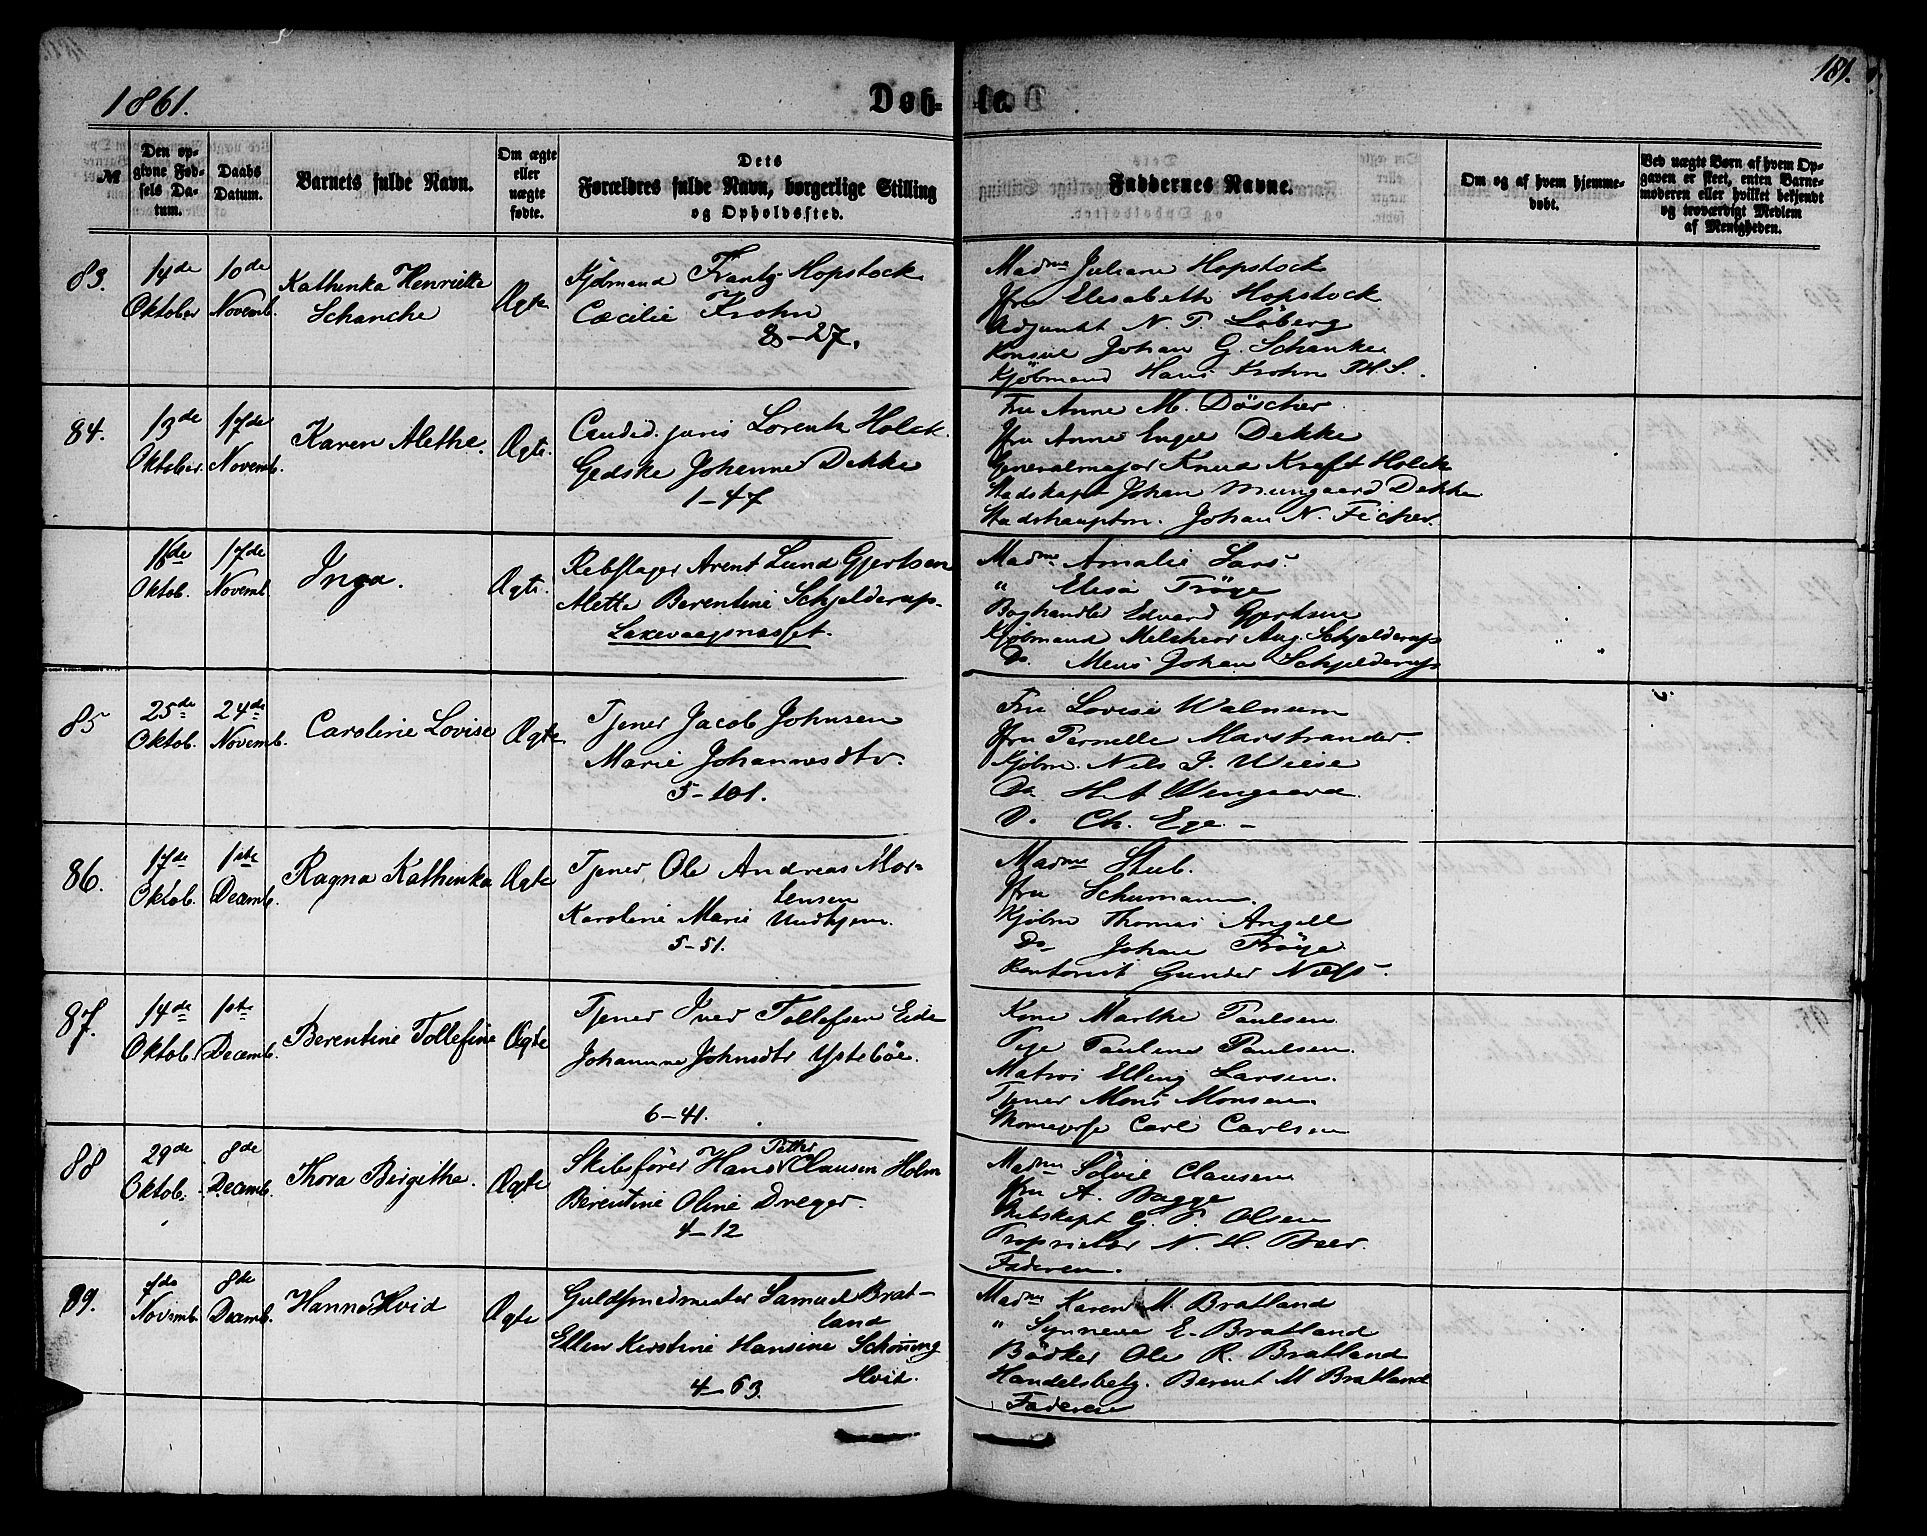 1861.
Døb-
te.
181.
№
Den op-
givne Fød-
sels Da-
tum.
Daabs
Datum.
Barnets fulde Navn.
Om ægte
eller
uægte
fødte.
Dets
Forældres fulde Navn, borgerlige Stilling
og Opholdssted.
Faddernes Navne.
Om og af hvem hjemme-
døbt.
Ved uægte Børn af hvem Op-
gaven er skeet, enten Barne-
moderen eller hvilket bekjendt
og troværdigt Medlem
af Menigheden.
83.
14de
Oktober
10de
Novemb.
Kathinka Henriette
Schanche
Ægte
Kjøbmand Frantz Hopstock
Cæcilie Krohn
8-27.
Madme Juliane Hopstock
Jfru Elisabeth Hopstock
Adjunkt N. T. Löberg
Konsul Johan G. Schanke
Kjöbmand Hans Krohn
84.
13de
Oktober.
17de
Novemb.
Karen Alethe.
Ægte.
Candid. juris Lorentz Holck.
Gedske Johanne Dekke
1-47
Fru Anne M. Döscher
Jfru Anne Engel Dekke
Generalmajor Knud Kraft Holck
Stadskapt Johan Dekke
Stadshauptm. Johan N. Ficher.
16de
Oktob.
17de
Novemb.
Inga.
Ægte.
Rebslager Arent Lund Gjertsen
Alette Berentine Schjelderup.
Laxevaagsnæsset.
Madme Amalie Sars.
" Elisa Tröye
Boghandler Edvard Gjertsen
Kjöbmand Melchior Aug. Schjelderup
Do Mens Johan Schjelderup
85
25de
Oktob.
24de
Novemb.
Caroline Lovise
Ægte
Tjener Jacob Johnsen
Marie Johannesdtr.
5-101.
Fru Lovise Walnum
Jfru Pernelle Marstrander.
Kjöbm. Nils J. Wiese
Do H. A. Wengaard
D. Ch. Ege -
86.
17de
Oktob.
1ste
Decemb.
Ragna Kathinka
Ægte
Tjener Ole Andreas Mor-
tensen
Karoline Marie Undhjem.
5-51.
Madme Stub.
Jfru Schumann.
Kjöbm Thomas Angell
Do Johan Tröye
Kontorist Gunder Næss.
87.
14de
Oktob.
1ste
Decemb.
Berentine Tollefine
Ægte
Tjener Iver Tollefsen Eide
Johanne Johnsdtr Ystebøe.
6-41.
Kone Marthe Paulsen
Pige Pauline Paulsen.
Matros Elling Larsen.
Tjener Mons Monsen
Carl Carlsen
88
29de
Oktob.
8de
Decemb.
Thora Birgithe.
Ægte
Petter
Skibsfører Hans Clausen Holm
Berentine Oline Dreyer.
4-12
Madme Solvie Clausen
Jfru A. Bagge
Skibskapt G. T. Olsen
Proprietær N. H. Beer.
Faderen.
89.
7de
Novemb.
8de
Decemb.
Hanna Hvid
Ægte
Guldsmedmester Samuel Brat-
land
Ellen Kirstine Hansine Schöning
Hvit.
4-63.
Madme Karen M. Bratland
" Synneve E. Bratland
Bödker Ole R. Bratland
Handelsbetj. Berent M Bratland
Faderen